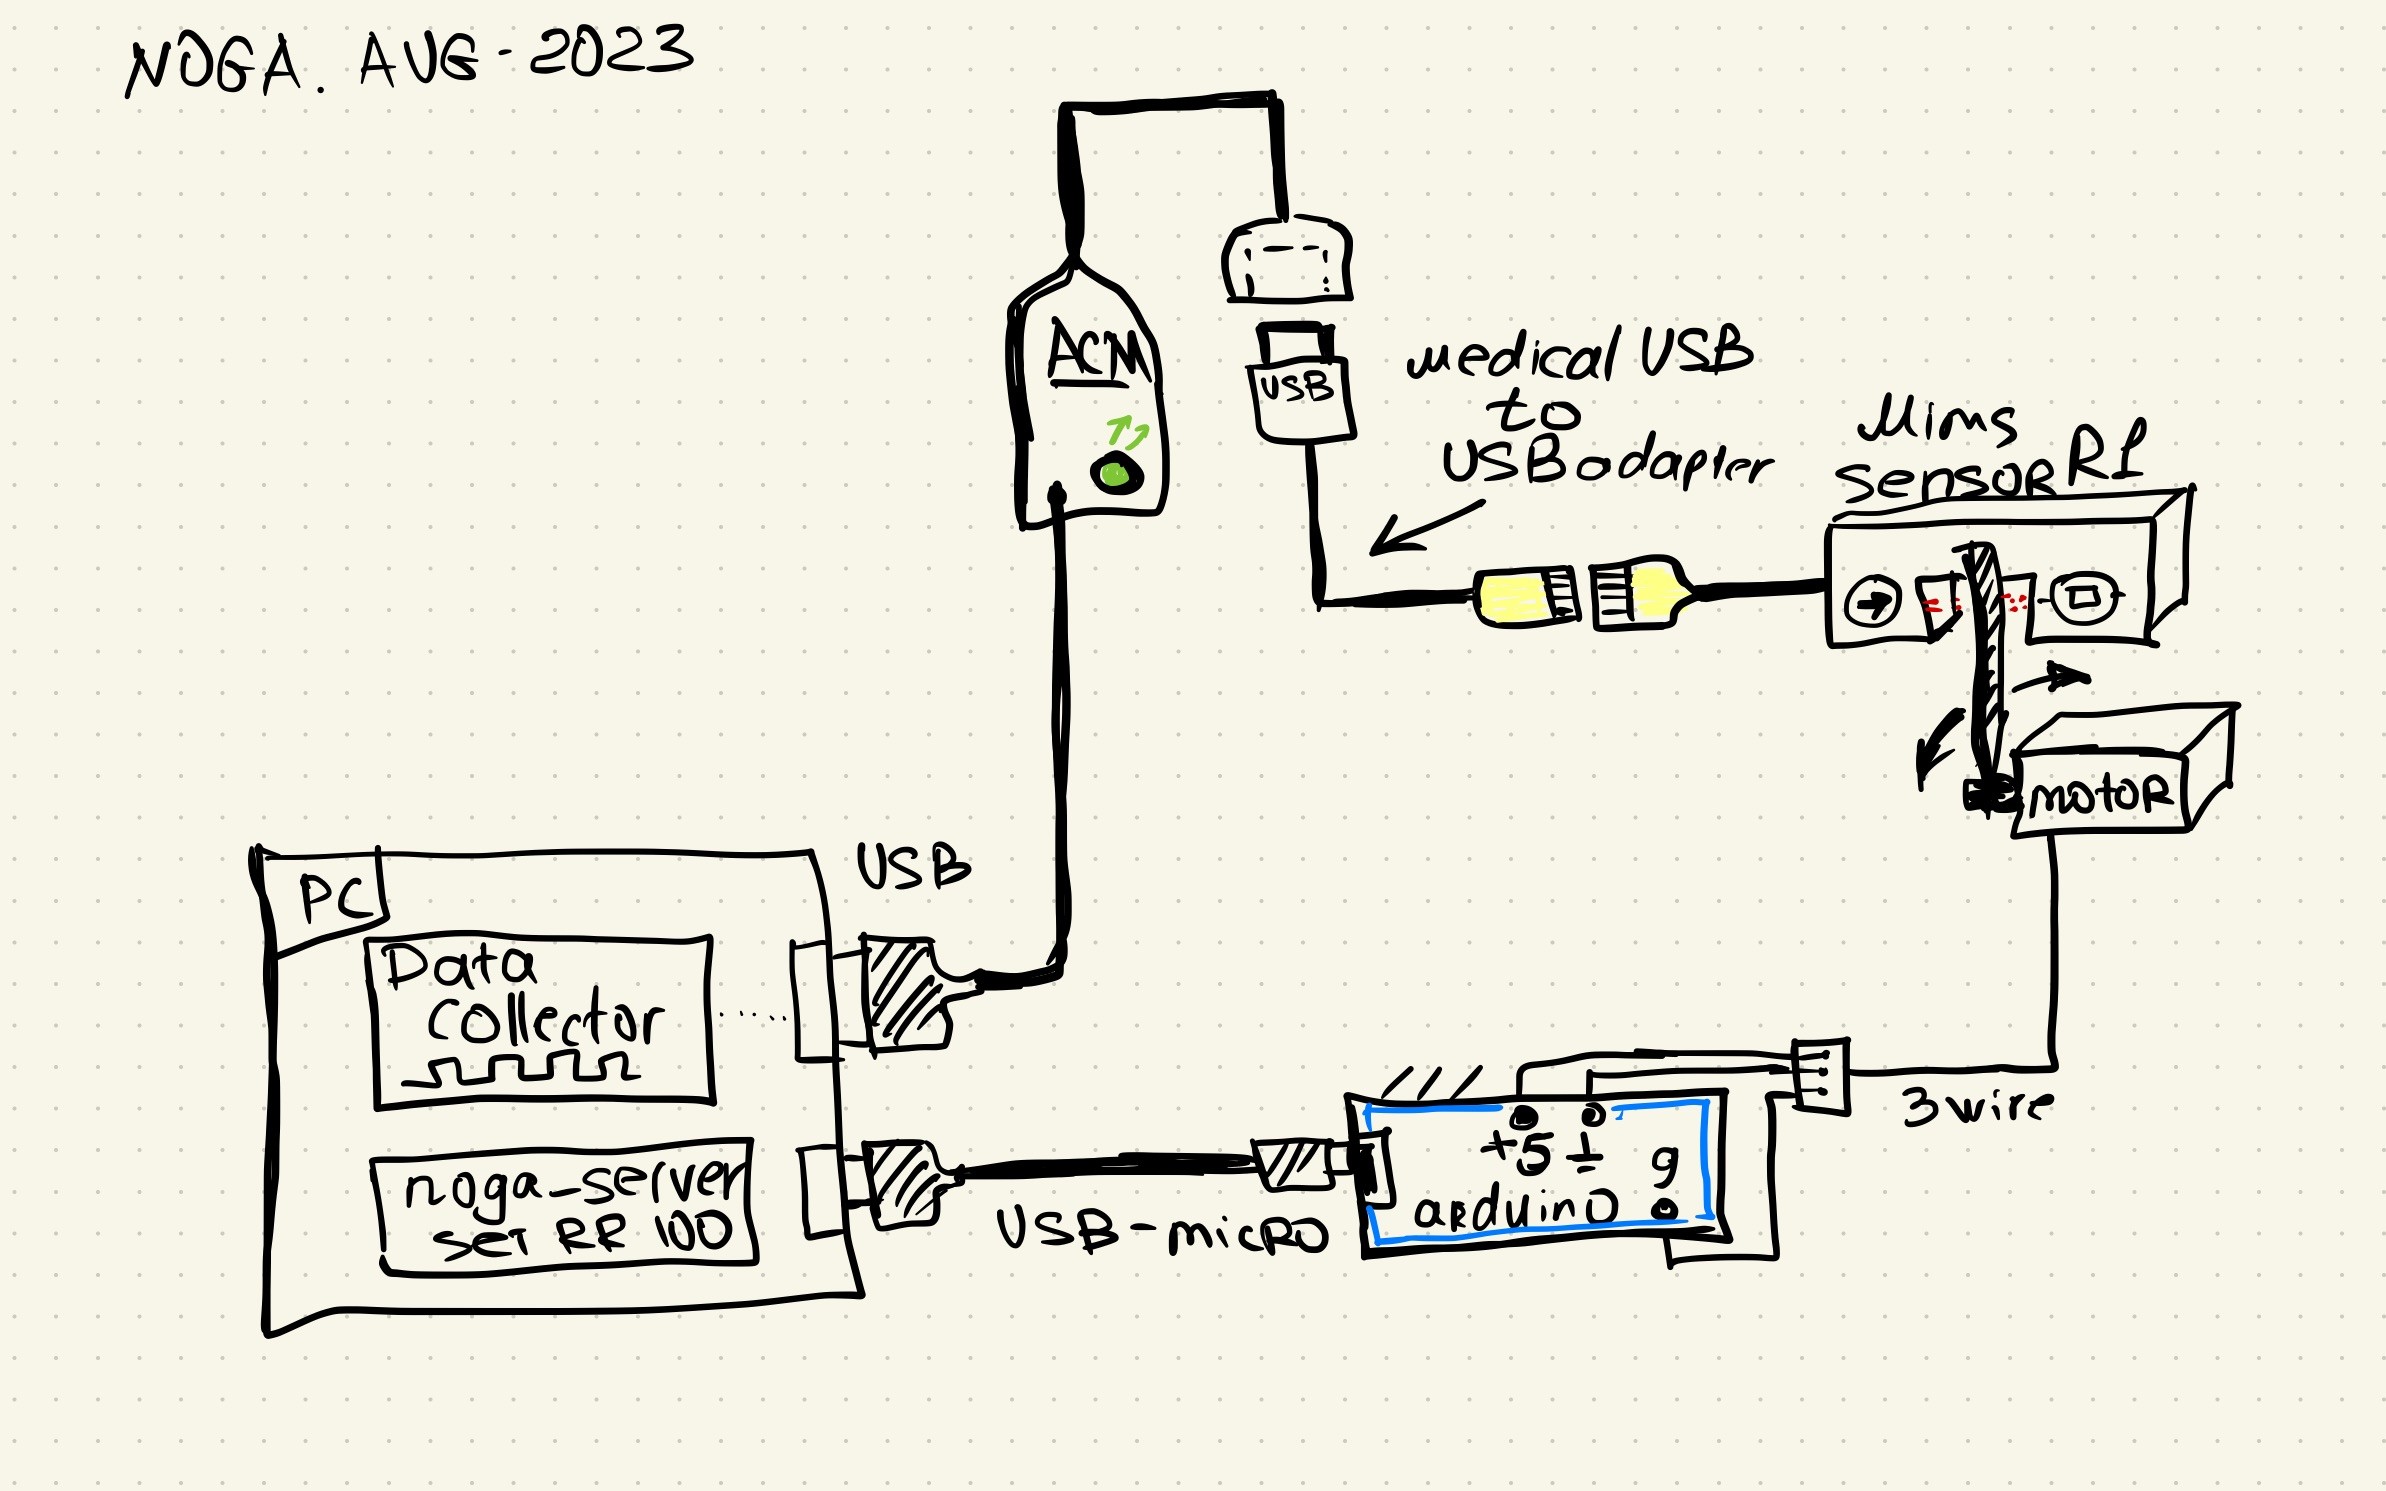 NOGA. AUG-2023
ACM
USB
medical USB
to
USB adapter
Mims
sensor R1
motor
PC
USB
Data
Collector
noga-server
SET RR 100
USB-micro
+5
9
arduino
3 wire